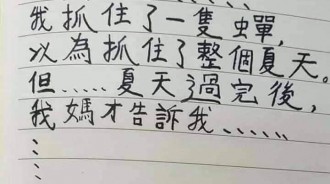 我抓住了一隻蟬,
以為抓住了整個夏天。
但.....夏天過完後,
我媽才告訴我......
⋮